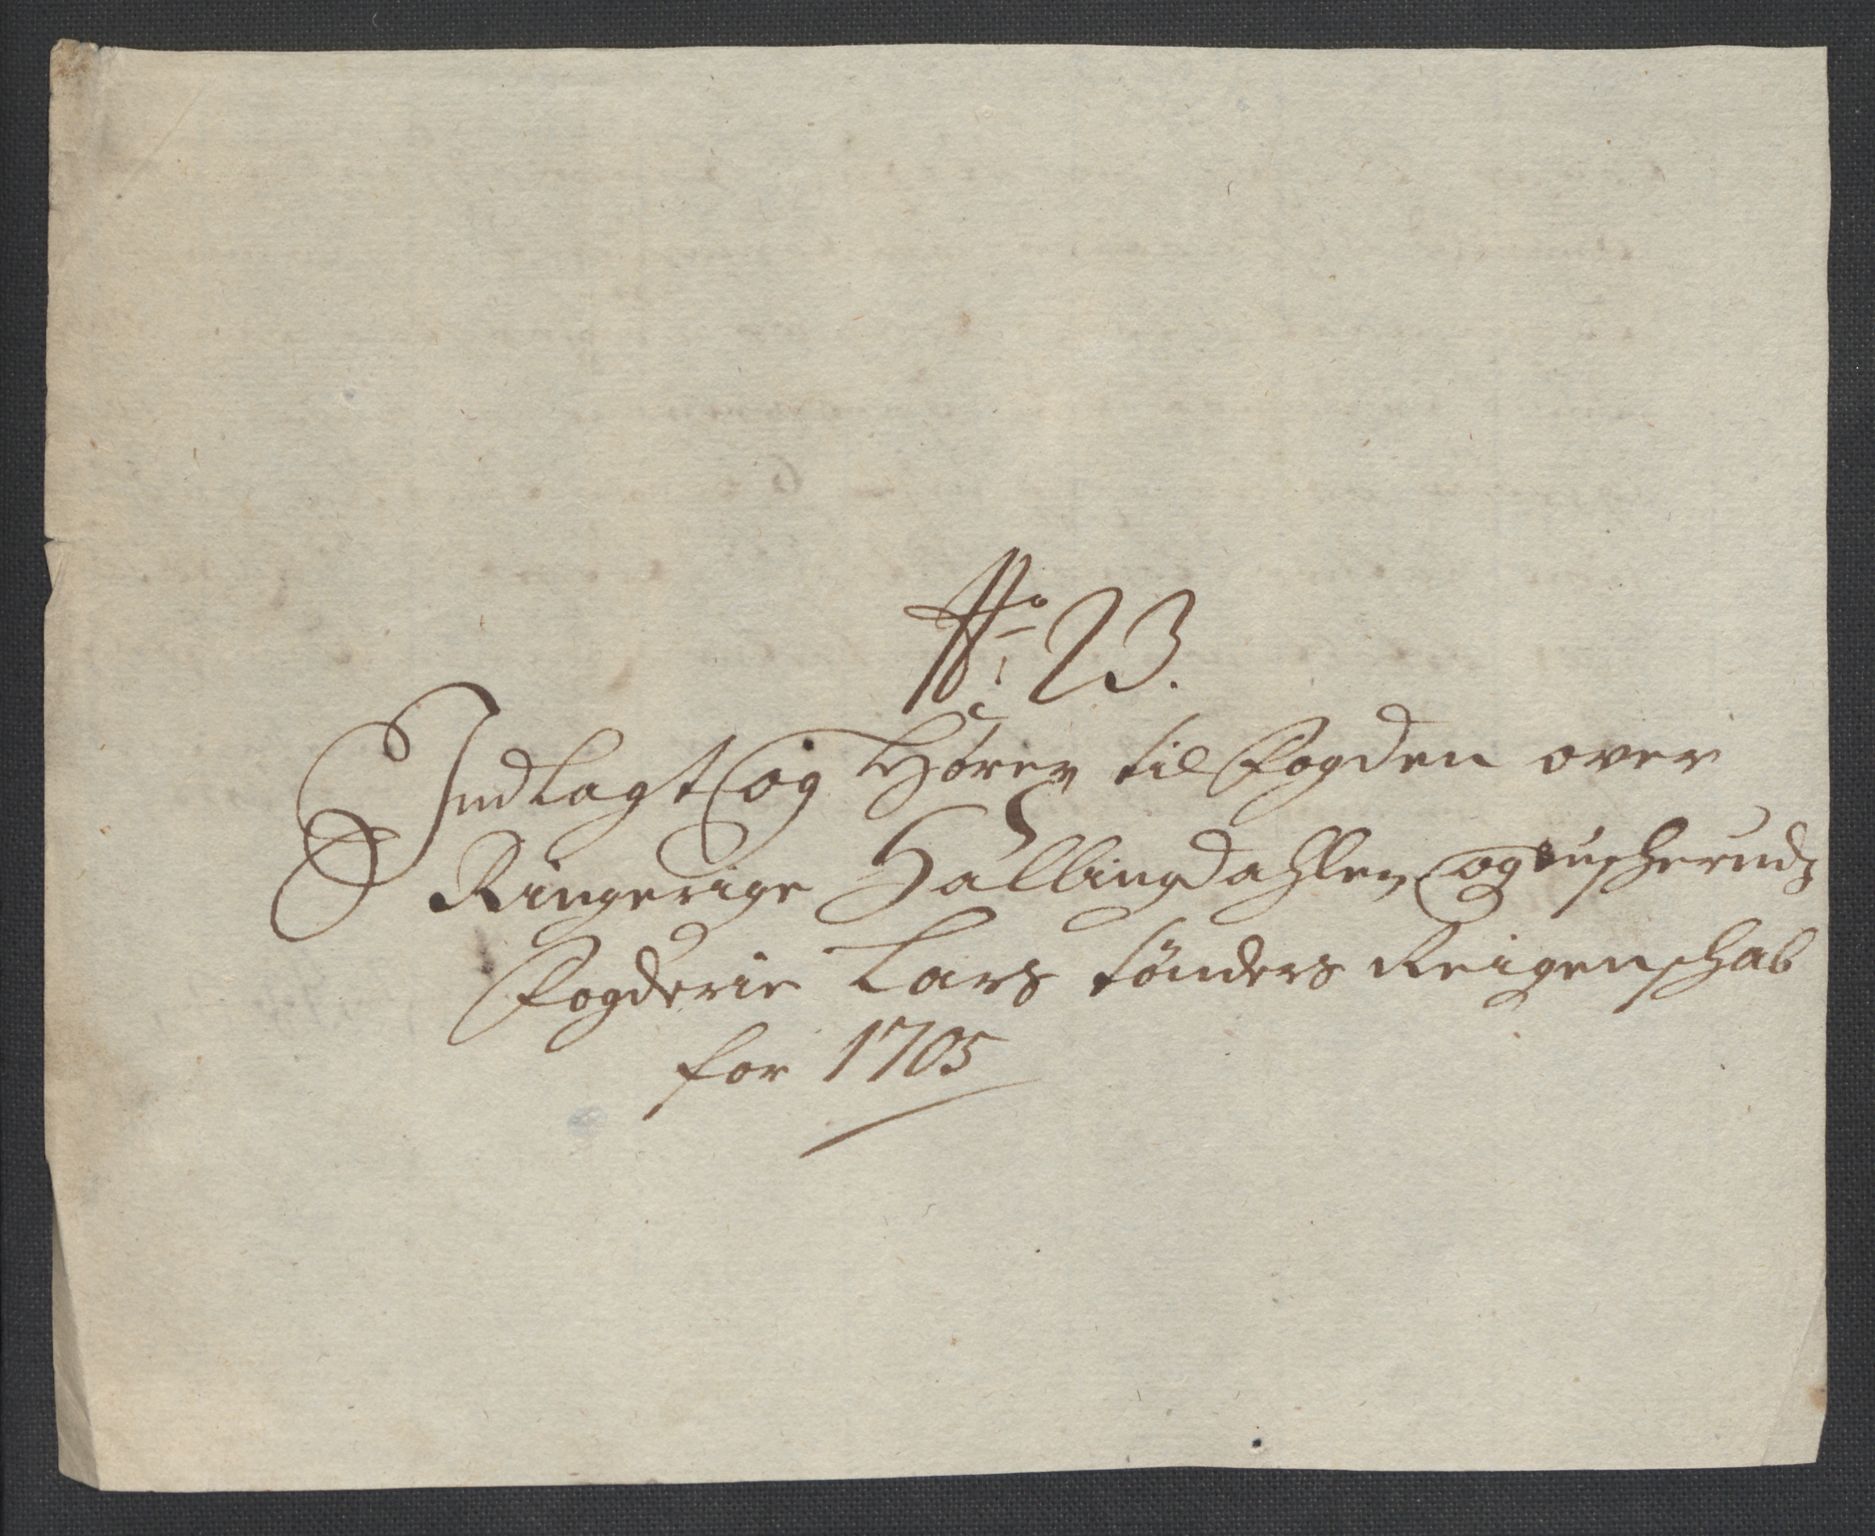 No: 23.
Indlagt og Hører til Fogden over
Ringerige Hallingdahlen og Buscheruds
Fogderie Lars Tønders Reigenschab
for 1705